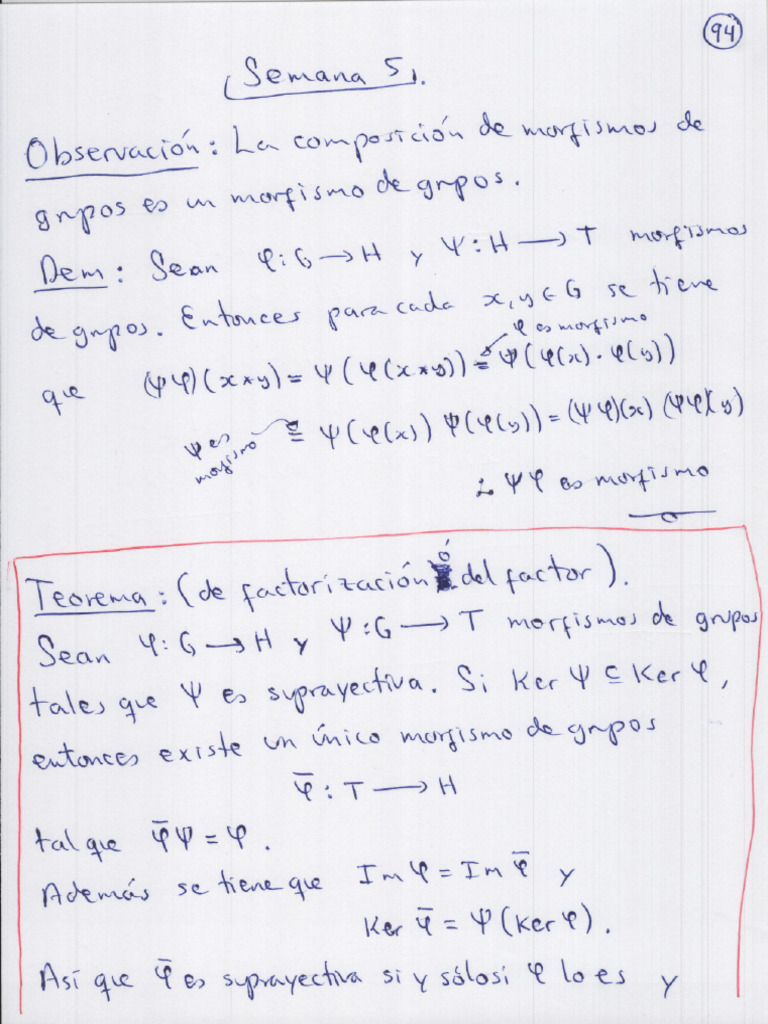 94
Semana 5.
Observación: La composición de morfismos de
grupos es un morfismo de grupos.
Dem: Sean φ: G → H y Ψ: H → T morfismos
de grupos. Entonces para cada x, y ∈ G se tiene
φ es morfismo
que (Ψφ)(x*y) = Ψ(φ(x*y)) = Ψ(φ(x)·φ(y))
Ψ es morfismo = Ψ(φ(x)) Ψ(φ(y)) = (Ψφ)(x) (Ψφ)(y)
∴ Ψφ es morfismo
Teorema: (de factorización ó del factor).
Sean φ: G → H y Ψ: G → T morfismos de grupos
tales que Ψ es suprayectiva. Si Ker Ψ ⊆ Ker φ,
entonces existe un único morfismo de grupos
φ̄: T → H
tal que φ̄Ψ = φ.
Además se tiene que Im φ = Im φ̄ y
Ker φ̄ = Ψ(Ker φ).
Así que φ̄ es suprayectiva si y sólo si φ lo es y